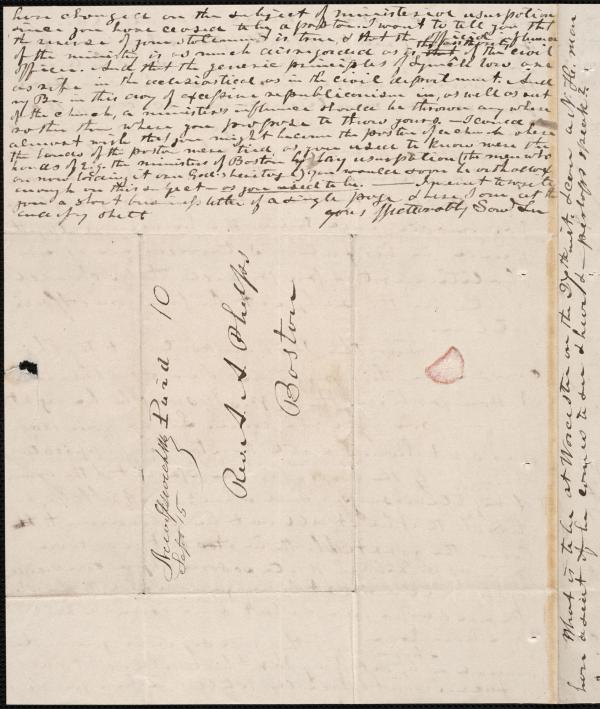 have changed on the subject of ministerial usurpation
since you have ceased to be a pastor. I want to tell you that
the reverse of your statement is true, & that the official influence
of the ministry is as much disregarded as is the authority of the civil
officer. And that the generic principles of Lynch law are
as rife in the ecclesiastical as in the civil department. And
my Br. in this day of excessive republicanism in, as well as out
of the church, a minister's influence should be thrown any where
rather than where you propose to throw yours. — I could
almost wish that you might become the pastor of a church where
the hands of the pastor were tied, as you used to know were the
hands of the ministers of Boston by lay usurpation (the men who
are now lording it over God's heritage) you would soon be orthodox
enough on this subject — as you used to be. — I meant to write to
you a short business letter of a single page & here I am at the
end of my sheet
yours affectionately
New Ipswich NH
Sept 15
Paid 10
Rev. A. A. Phelps
Boston
What is to be at Worcester on the
have a seat if he comes & we should — perhaps speak &c.